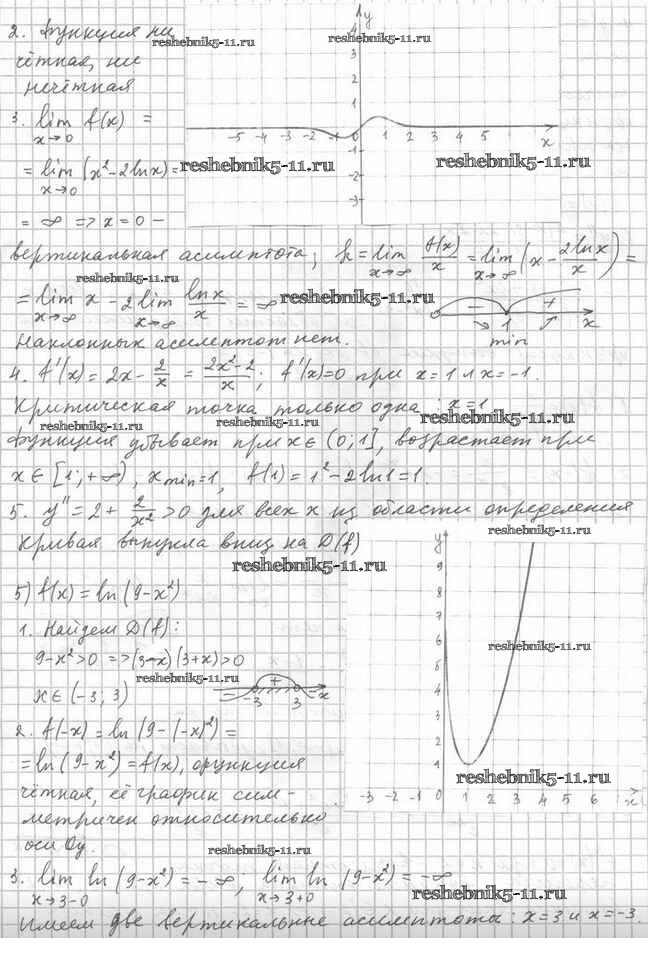 2. Функция ни
чётная, ни
нечётная
3. lim f(x) =
x→0
= lim (x²-2lnx)=
x→0
= ∞ => x=0 –
вертикальная асимптота; k = lim f(x)/x = lim (x - 2lnx/x) =
x→∞ x→∞
= lim x - 2 lim lnx/x = ∞
x→∞ x→∞
Наклонных асимптот нет.
4. f'(x) = 2x - 2/x = (2x²-2)/x; f'(x)=0 при x=1 и x=-1.
Критическая точка только одна: x=1
Функция убывает при x∈(0;1], возрастает при
x∈[1;+∞), x min=1, f(1)=1²-2ln1=1.
5. y''=2+ 2/x² >0 для всех x из области определения
Кривая выпукла вниз на D(f)
5) f(x) = ln(9-x²)
1. Найдем D(f):
9-x²>0 =>(3-x)(3+x)>0
x∈(-3;3)
2. f(-x) = ln(9-(-x)²) =
= ln(9-x²) = f(x), функция
чётная, её график сим-
метричен относительно
оси Oy.
3. lim ln(9-x²) = -∞; lim ln(9-x²) = -∞
x→3-0 x→3+0
Имеем две вертикальные асимптоты: x=3 и x=-3.
y
4
3
2
1
-5 -4 -3 -2 -1 0 1 2 3 4 5
x
-1
-2
-3
- +
1 x
min
- + -
-3 3 x
y
9
8
7
6
5
4
3
2
1
-3 -2 -1 0 1 2 3 4 5 6 x
reshebnik5-11.ru
reshebnik5-11.ru
reshebnik5-11.ru
reshebnik5-11.ru
reshebnik5-11.ru
reshebnik5-11.ru
reshebnik5-11.ru
reshebnik5-11.ru
reshebnik5-11.ru
reshebnik5-11.ru
reshebnik5-11.ru
reshebnik5-11.ru
reshebnik5-11.ru
reshebnik5-11.ru